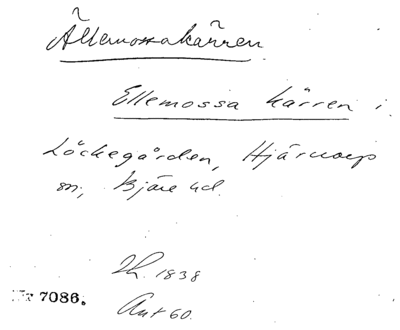 Ällemossakärren
Ellemossa kärren i
Löckegården, Hjärnarp
sn, Bjäre hd.
Lh. 1838
Nr 7086.
Ant 60.